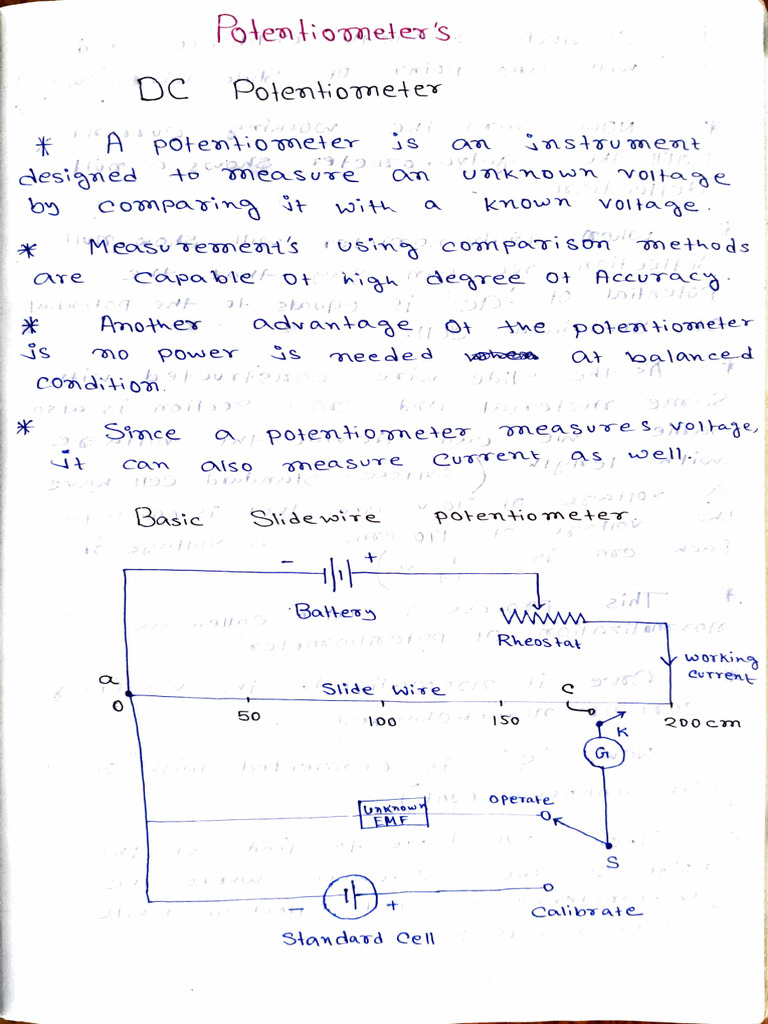 Potentiometer's
DC Potentiometer
* A potentiometer is an instrument
designed to measure an unknown voltage
by comparing it with a known voltage.
* Measurement's using comparison methods
are capable of high degree of Accuracy.
* Another advantage of the potentiometer
is no power is needed at balanced
condition.
* Since a potentiometer measures voltage,
it can also measure current as well.
Basic Slidewire potentiometer.
- +
Battery
Rheostat
working
current
a
Slide Wire
C
0 50 100 150 200cm
K
G
Operate
Unknown
EMF
S
- +
Calibrate
Standard Cell